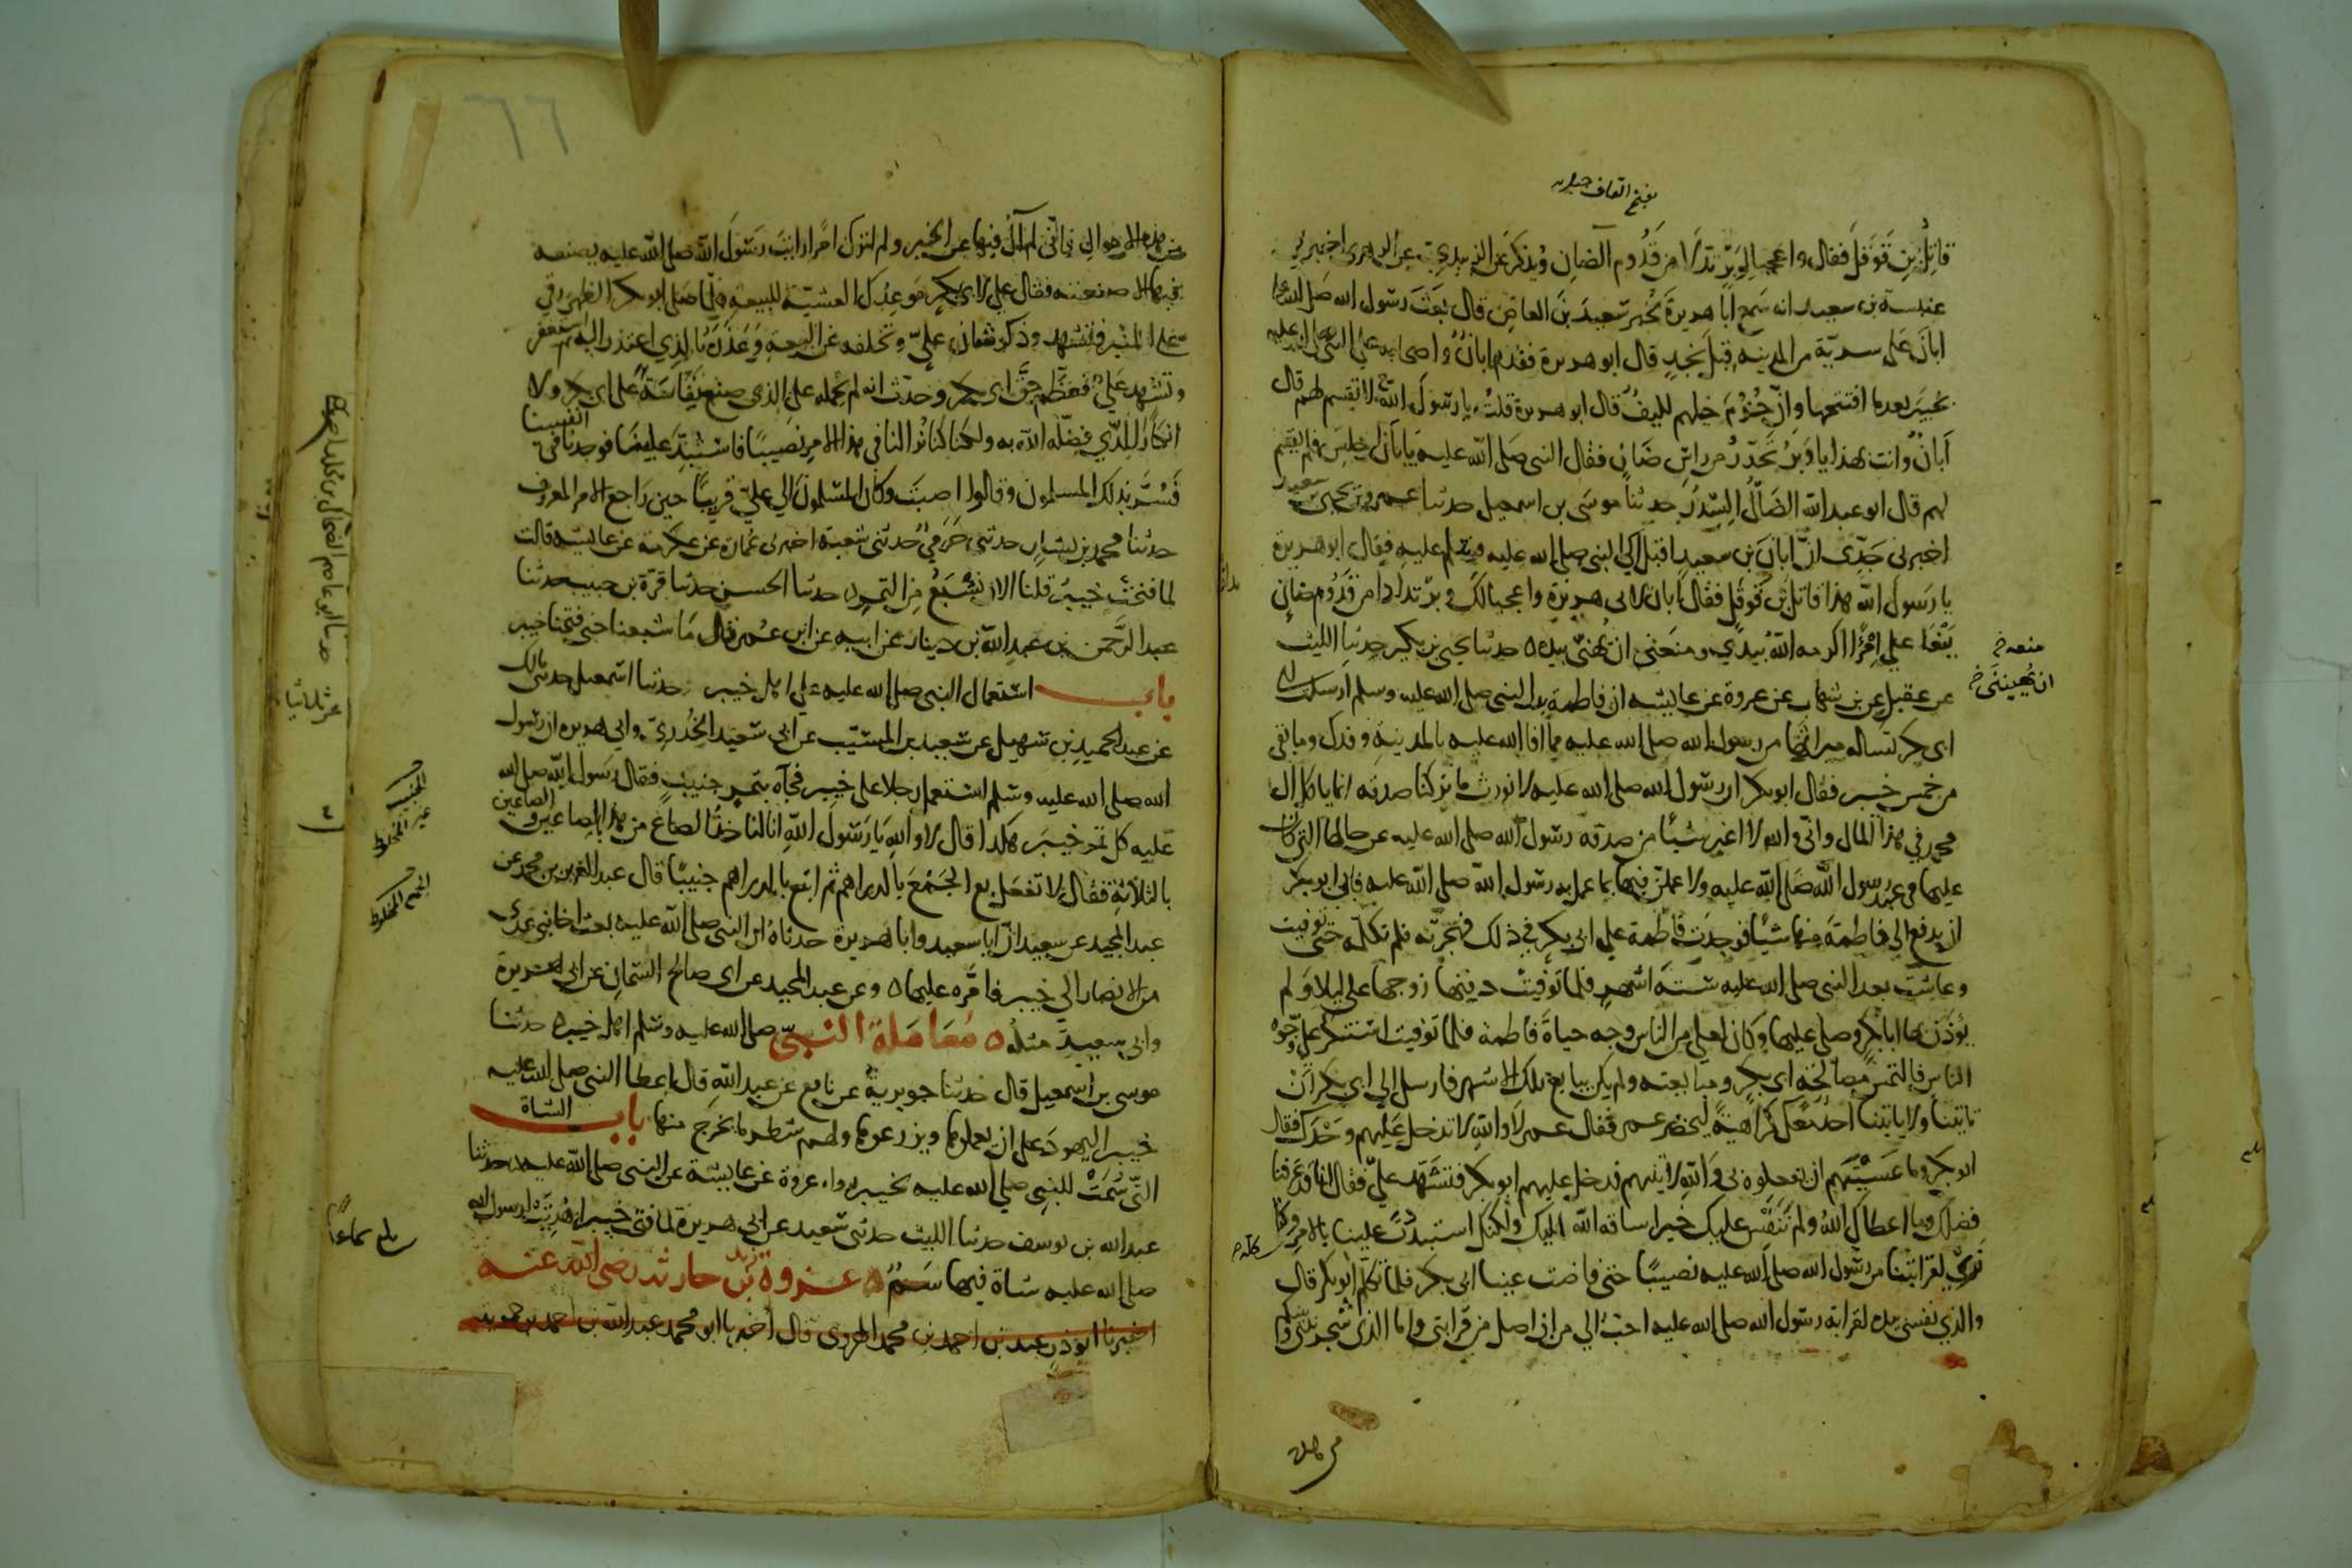 بفتح القاف
قاتِلُ بنِ قَوقَل فقال واعجبا لِوَبْرٍ تدلّا من قَدُوم الضانِ ويُذكرَ عَن الزبيدي عن الزهري اخبرني
عنبسة بن سعيد انه سمع ابا هريرة يخبر سعيدَ بنَ العاصِ قال بعَثَ رسول الله صَلى الله عليه
ابانَ عَلى سريّة من المدينه قِبَلَ نجدٍ قال ابو هريرة فقدم ابانُ واصحابه على النبي صلى الله عليه
بخيبَر بعدما افتتحها وانّ حُزُمَ خيلهم لليفُ قال ابو هريرة قلتُ يا رسُولَ الله لا تقسم لهم قال
أبانُ وانت بهذا يا وَبْرُ تحَدّرَ من راسِ ضَانٍ فقال النبي صَلى الله عليه يا أبَان اجلِسَ فلم يقسم
لهم قال ابو عبد الله الضَالُ السِّدرُ حدثنا موسَى بن اسمعيل حدثنا عمرو بن يحيى بن سعيد
اخبرني جَدّي انّ ابانَ بن سعيد اقبَلَ الى النبي صلى الله عليه فسلم عليه فقال ابو هريرة
يا رسُول الله هذا قاتلُ بن قوقَلٍ فقال ابان لابى هريرة واعجبا لكَ وبرٌ تدادا من قَدُوم ضانٍ
يَنعَا علي امرًا اكرمه اللهُ بيدي ومنعَني ان يُهنّي بيده حدثنا يحيى بن بكير حدثنا الليث
منعه
ان يُهينَني
عن عقيل عن بن شهاب عن عروة عن عايشه ان فاطمة بنت النبي صلى الله عليه وسلم ارسلت الى
ابي بكر تساله ميراثها من رسول الله صلى الله عليه مما افا الله عليه بالمدينة وفدك وما بقي
من خمس خيبر فقال ابو بكر ان رسول الله صلى الله عليه قال لا نورث ما تركنا صدقه انما ياكل ال
محمد في هذا المال واني والله لا اغير شيئًا من صدقه رسول الله صلى الله عليه عن حالها التي كان
عليها في عهد رسول الله صَلى الله عليه ولا عملنّ فيها بما عمل به رسول الله صلى الله عليه فابى ابو بكر
ان يدفع الى فاطمَةَ منها شيًا فوجدَت فاطمة علي ابي بكرٍ في ذلك فهجرته فلم تكلمه حتى توفيت
وعاشت بعد النبي صلى الله عليه ستةَ اشهرٍ فلما تُوفيت دفنها زوجها علي ليلا ولم
يُؤذن بها ابا بكرٍ وصلى عليها وكان لعلي من الناس وجه حياةَ فاطمة فلما توفيت استنكر علي وجوهَ
الناسِ فالتمسَ مصالحَة ابي بكرٍ ومبايعته ولم يكن يبايع تلك الاشهر فارسل الي ابي بكر أنْ
تاتينا ولا ياتينا احد معَك كراهيةً ليحضر عمر فقال عمر لا والله لا تدخل عليهم وَحْدَك فقال
ابو بكر وما عَسَيْتَهم ان يفعلوه بي وَالله لاتينهم فدخل عليهم ابو بكر فتشَهّد عليّ فقال انا قد عَرفنا
فضلك وما اعطاك اللهُ ولم نَنفَس عليك خيرا ساقه الله اليك ولكنك استبددتَ علينا بالامر وكنا
نُرى لقرابتنا من رسُول الله صلى الله عليه نصيبًا حتى فاضت عينا ابي بكر فلما تكلّم ابو بكر قال
والذي نفسي بيده لقرابة رسُول الله صلى الله عليه احبّ الي من ان اصل من قرابتي واما الذي شجر بيني وبينكم
من هذه
٦٦
من هذه الاموال فاني لم آلُ فيها عن الخير ولم اترك امرًا رايت رسُول الله صلى الله عليه يصنعه
فيها الا صنعته فقال علي لابي بكرٍ موعدك العشيّة للبيعة فلما صَلى ابو بكر الظهر رقي
على المنبر فتشهد وذكر شان عليّ وتخلفه عن البيعة وَعَذرَه بالذي اعتذر اليه ثم استغفر
وتشهد عَليُّ فعَظّم حقّ ابي بكر وحدّث انه لم يحمله على الذي صنع نفاسَةً على ابي بكر ولا
انكارًا للذي فضّله الله به ولكنا كنا نُرا لنا في هذا الامرِ نصيبًا فاستُبِدّ علينَا فوجدنا في انفسنا
فسُرّ بذلك المسلمون وقالوا اصبتَ وكان المسلمونَ الي عليّ قريبًا حين راجع الامر المعروف
حدثنا محمد بن بشار حدثني حَرَميّ حدثني شعبة اخبرني عمارة عن عكرمة عن عايشه قالت
لما فتحت خيبرُ قلنا الان نشبَعُ من التمرِ حدثنا الحسن حدثنا قرّة بن حبيب حدثنا
عبد الرَّحمن بن عبد الله بن دينار عن ابيه عن ابن عمر قال مَا شبعنا حتى فتحنا خيبر
باب استعمال النبي صلى الله عليه علي اهل خيبر حدثنا اسمعيل حدثني مالك
عن عبد المجيد بن سُهيل عن سعيد بن المسيّب عن ابي سعيد الخُدريّ وابي هريره ان رسول
الله صلى الله عليه وسلم استعمل رجلا على خيبر فجآه بتمرٍ جنيبٍ فقال رسُول الله صلى الله
عليه كل تمر خيبَر هكذا قال لا والله يا رسُول اللهِ انا لناخذُ الصاع من هذا بالصاعين والصاعين
بالثلاثةِ فقال لا تفعَل بع الجَمْعَ بالدراهم ثم ابتع بالدراهم جنيبًا قال عبد العزيز بن محمد عن
الجنيب
غير المخلوط
الجمع المخلوط
عبد المجيد عن سعيد انّ ابا سعيد وابا هريرة حدثاهُ ان النبي صلى الله عليه بعث اخا بني عدي
من الانصار الي خيبر فامّره عليها وعن عبد المجيد عن ابي صالح السَّمانِ عن ابي هريرة
وابي سعيدٍ مثلُه مُعَامَلة النبيّ صلى الله عليه وسلم اهل خيبر حدثنا
موسى بن اسمعيل قال حدثنا جويرية عن نافع عن عبد الله قال اعطا النبي صلى الله عليه
خيبر اليهودَ على ان يعملوها ويزرعوها ولهم شطر ما يخرج منها باب الشاة
التي سُمّتْ للنبي صلى الله عليه بخيبر رواه عروة عن عايشة عن النبي صلى الله عليه حدثنا
عبد الله بن يوسف حدثنا الليث حدثني سعيد عن ابي هريرة لما فتحت خيبر اُهديَت لرسول الله
صلى الله عليه شاة فيها سَمٌّ غزوة زيد بن حارثه رضي الله عنه
اخبرنا ابو ذرٍ عبد بن احمد بن محمد الهروي قال اخبرنا ابو محمد عبد الله بن احمد بن حمويه